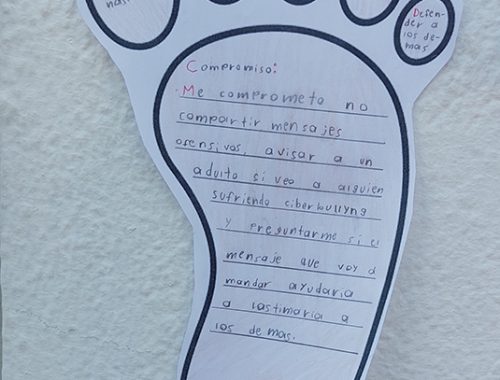 nas.
Defen-
der a
los de-
mas
Compromiso:
Me comprometo no
compartir mensajes
ofensivos, avisar a un
adulto si veo a alguien
sufriendo ciberbullyng
y preguntarme si el
mensaje que voy a
mandar ayudaria
o lastimaria a
los demas.